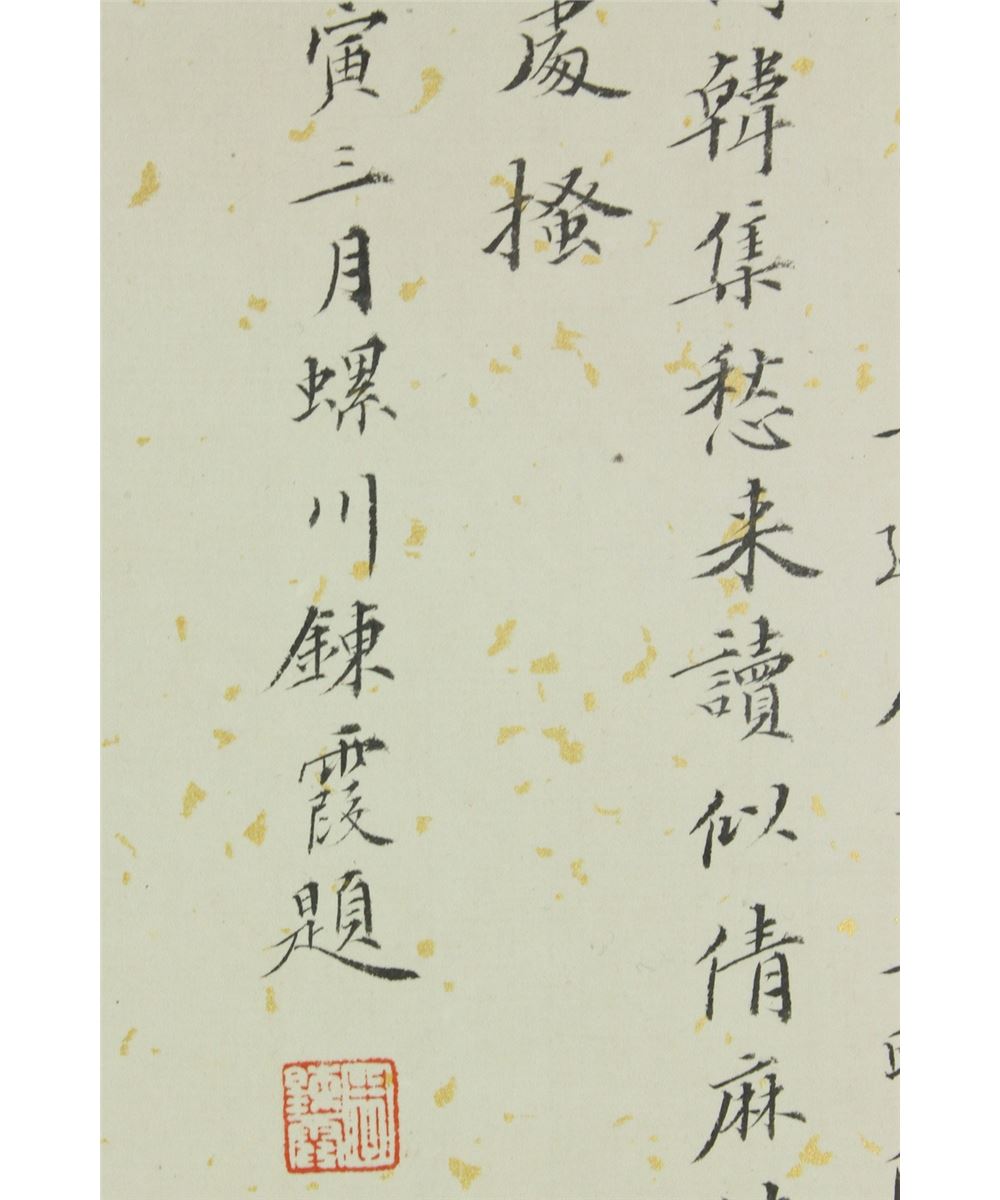 韓集愁来讀似倩麻
處搔
寅三月螺川錬霞題